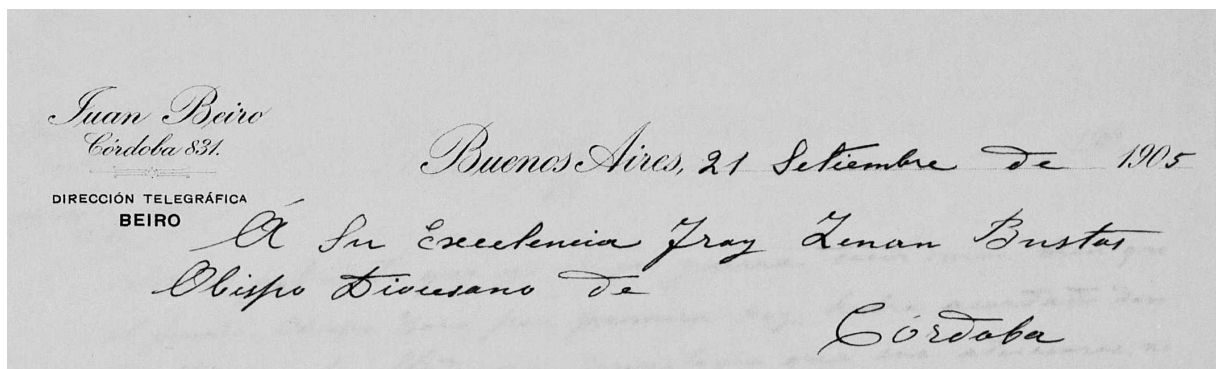 Juan Beiro
Córdoba 831.
DIRECCIÓN TELEGRÁFICA
BEIRO
Buenos Aires, 21 Setiembre de 1905
Á Su Excelencia Fray Zenon Bustos
Obispo Diocesano de
Córdoba